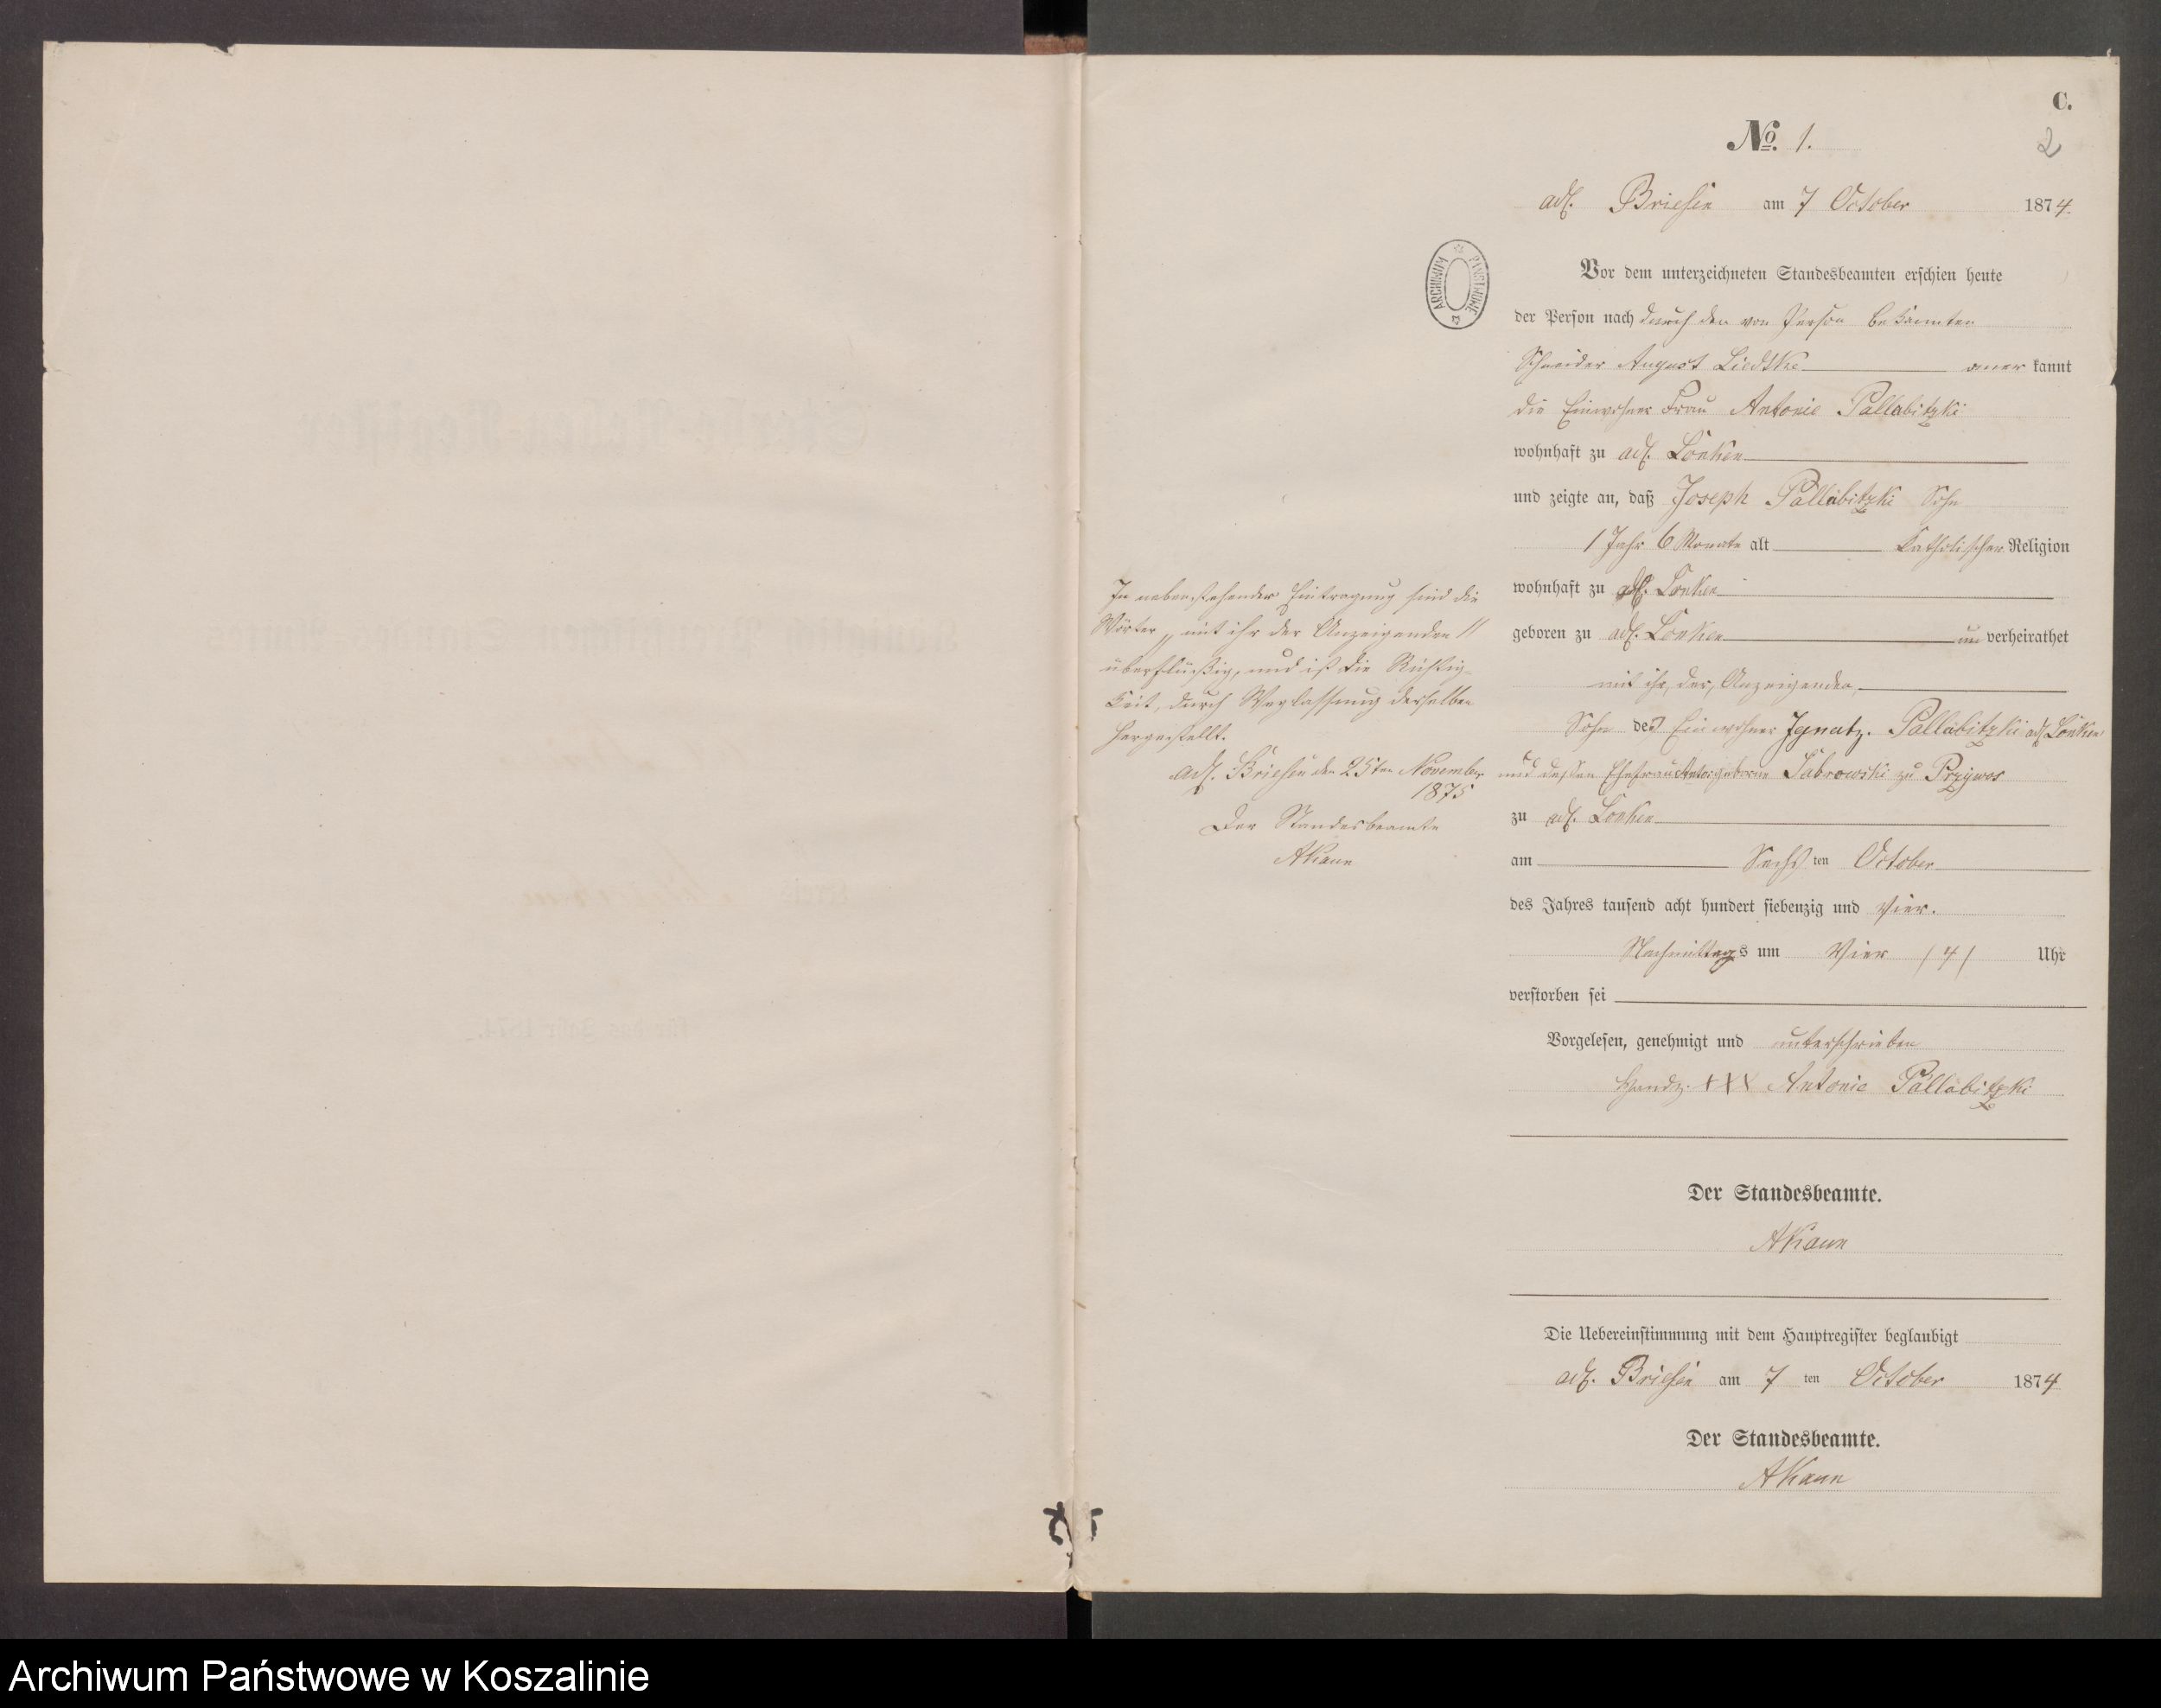 C.
No. 1.
2
adl. Briesen am 7 October 1874.
ARCHIWUM PAŃSTWOWE
Vor dem unterzeichneten Standesbeamten erschien heute
der Person nach durch den von Person bekannten
Schneider August Liedtke anerkannt
die Einwohner Frau Antonie Pallabitzki
wohnhaft zu adl. Lonken
und zeigte an, daß Joseph Pallabitzki Sohn
1 Jahr 6 Monate alt katholischer Religion
wohnhaft zu adl. Lonken
geboren zu adl. Lonken unverheirathet
mit ihr, der, Anzeigenden,
Sohn des Einwohner Ignatz. Pallabitzki adl. Lonken
und dessen Ehefrau geborne Jabrowski zu Przywos
zu adl. Lonken
am Sechsten October
des Jahres tausend acht hundert siebenzig und Vier.
Nachmittags um Vier (4) Uhr
verstorben sei
Vorgelesen, genehmigt und unterschrieben
Handz. XXX Antonie Pallabitzki
Der Standesbeamte.
AKaun
Die Uebereinstimmung mit dem Hauptregister beglaubigt
adl. Briesen am 7 ten October 1874
Der Standesbeamte.
AKaun
In nebenstehender Eintragung sind die
Wörter „mit ihr der Anzeigenden"
überflüßig, und ist die Richtig-
keit, durch Weglassung derselben
hergestellt.
adl. Briesen den 25ten November
1875
Der Standesbeamte
AKaun
Archiwum Państwowe w Koszalinie